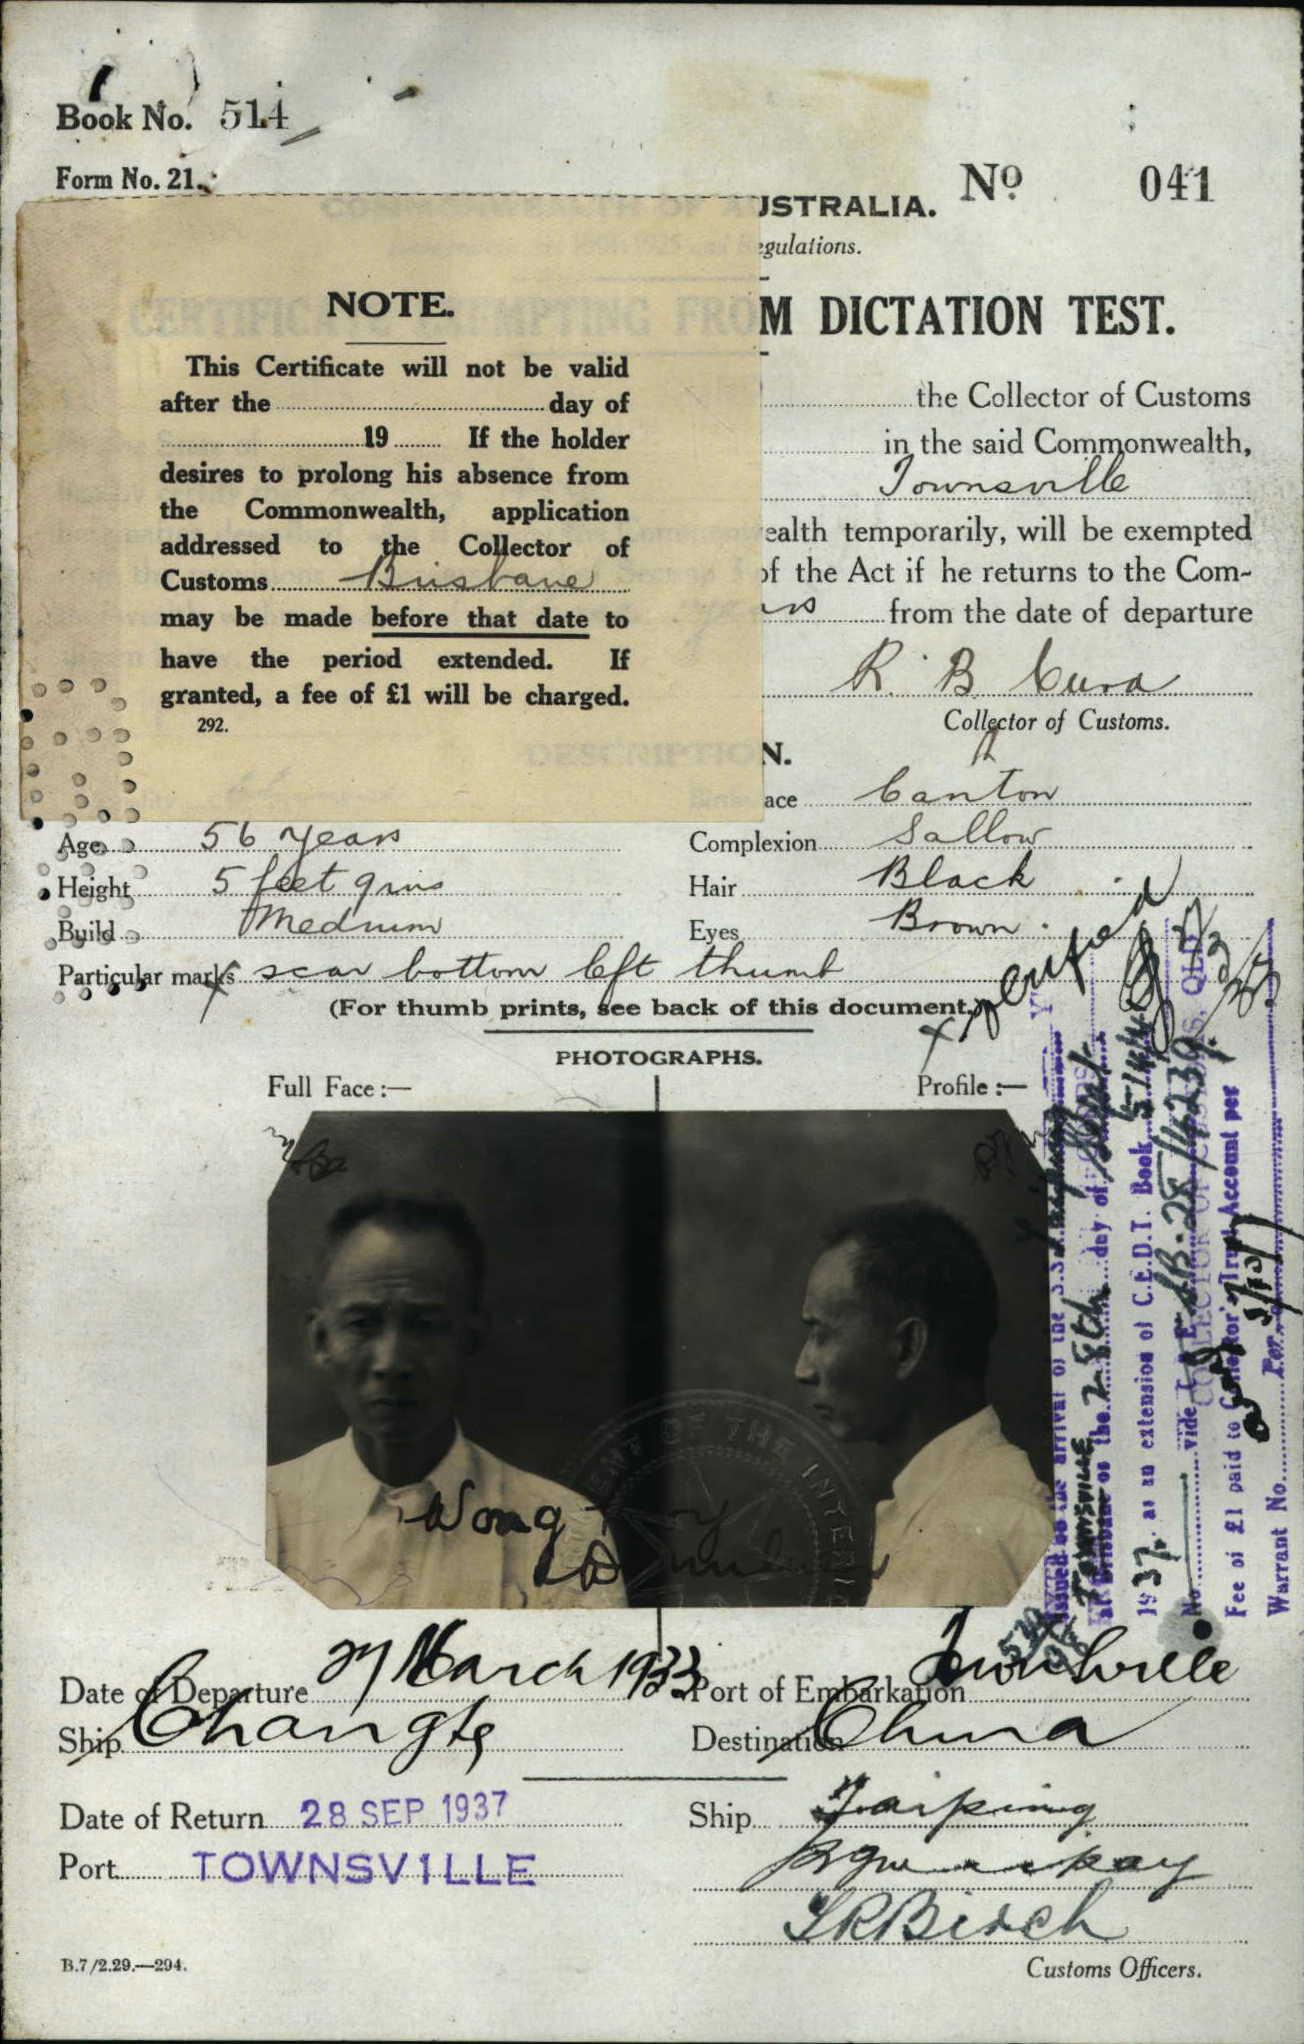 Book No. 514
Form No. 21.
No. 041
COMMONWEALTH OF AUSTRALIA.
Regulations.
CERTIFICATE EXEMPTING FROM DICTATION TEST.
NOTE.
This Certificate will not be valid
after the day of
19 If the holder
desires to prolong his absence from
the Commonwealth, application
addressed to the Collector of
Customs Brisbane
may be made before that date to
have the period extended. If
granted, a fee of £1 will be charged.
292.
the Collector of Customs
in the said Commonwealth,
Townsville
ealth temporarily, will be exempted
of the Act if he returns to the Com-
years from the date of departure
R. B. Cura
Collector of Customs.
DESCRIPTION.
ace Canton
Age 56 years
Complexion Sallow
Height 5 feet 9 ins
Hair Black
Build Medium
Eyes Brown
Particular marks scar bottom left thumb
(For thumb prints, see back of this document.)
PHOTOGRAPHS.
Full Face :—
Profile :—
Wong
DEPARTMENT OF THE INTERIOR
Issued on the arrival of the S.S. Taiping
at Brisbane TOWNSVILLE on the 28th day of Sept.
1937. as an extension of C.E.D.T. Book 514/41
No. vide
Fee of £1 paid to Collector's Trust Account per
Warrant No. For
COLLECTOR OF CUSTOMS, QLD
Date of Departure 27 March 1933
Port of Embarkation Townsville
Ship Changte
Destination China
Date of Return 28 SEP 1937
Ship Taiping
Port TOWNSVILLE
Birch
B.7/2.29.—294.
Customs Officers.